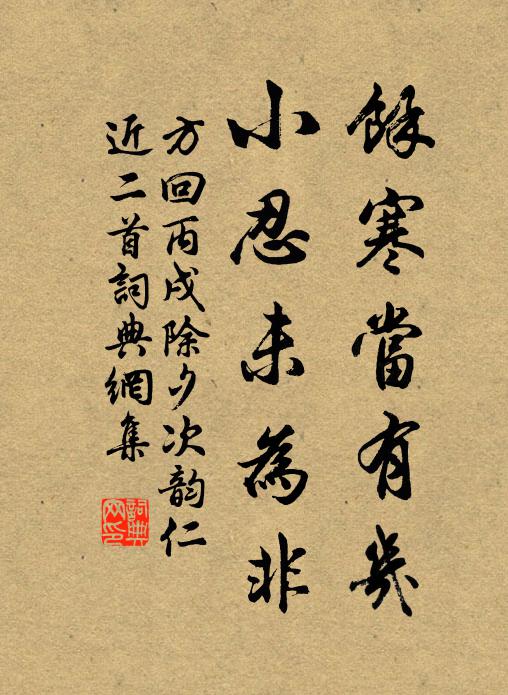 餘寒當有幾
小忍未為非
方回丙戌除夕次韵仁
近二首詞典網集
詞典
网印